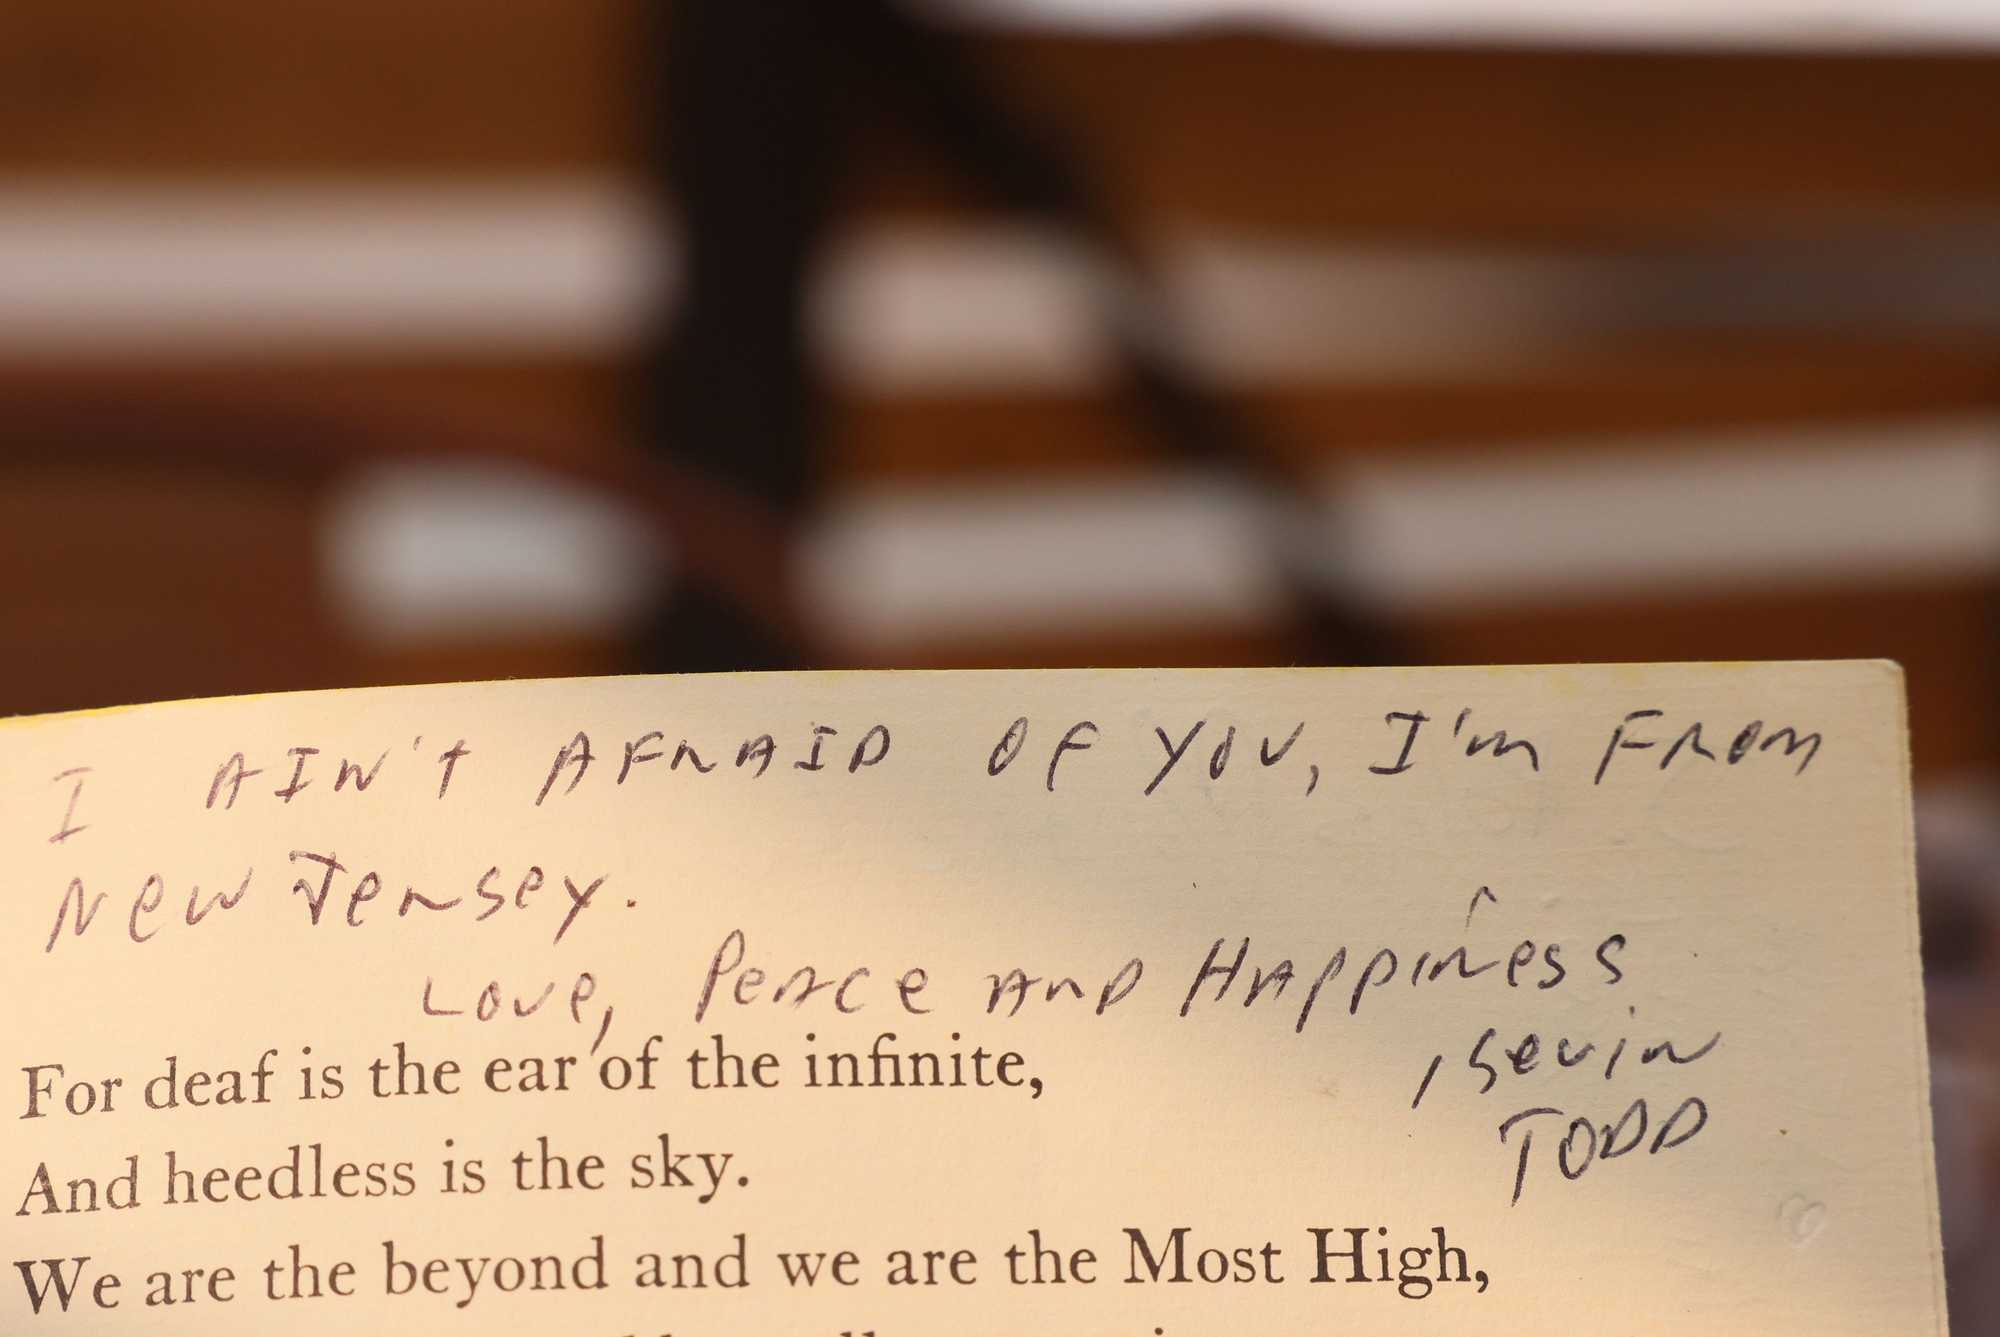 I AIN't AFRAID OF YOU, I'm FROM
New Jersey.
Love, Peace AND HAPPINess
, Sevin
TODD
For deaf is the ear of the infinite,
And heedless is the sky.
We are the beyond and we are the Most High,